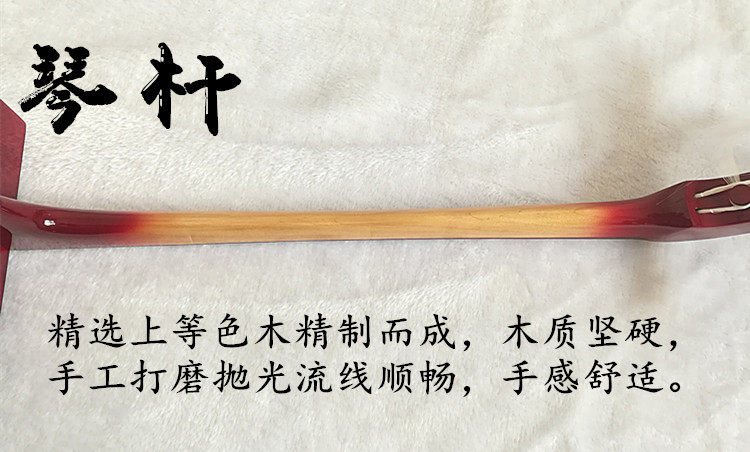 琴杆
精选上等色木精制而成，木质坚硬，
手工打磨抛光流线顺畅，手感舒适。